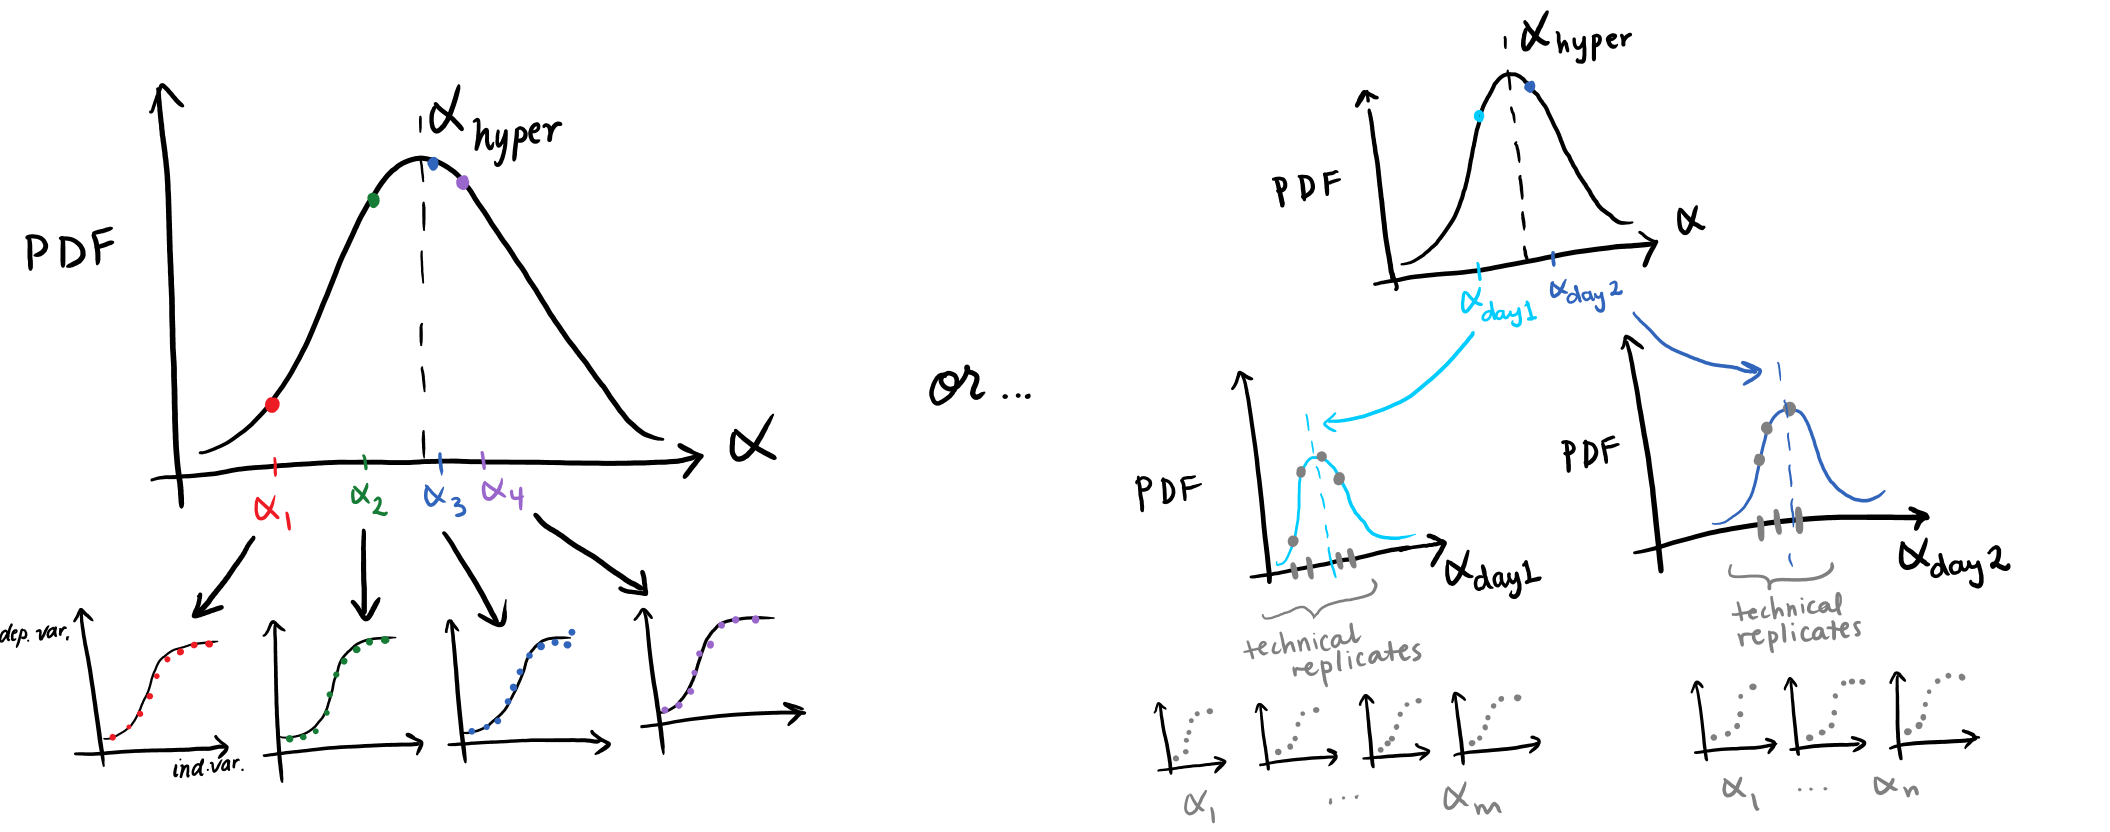 α hyper
PDF
α
α1
α2
α3
α4
dep. var.
ind. var.
or ...
α hyper
PDF
α
α day1
α day2
PDF
α day1
technical
replicates
PDF
α day2
technical
replicates
α1 ... αm
α1 ... αn